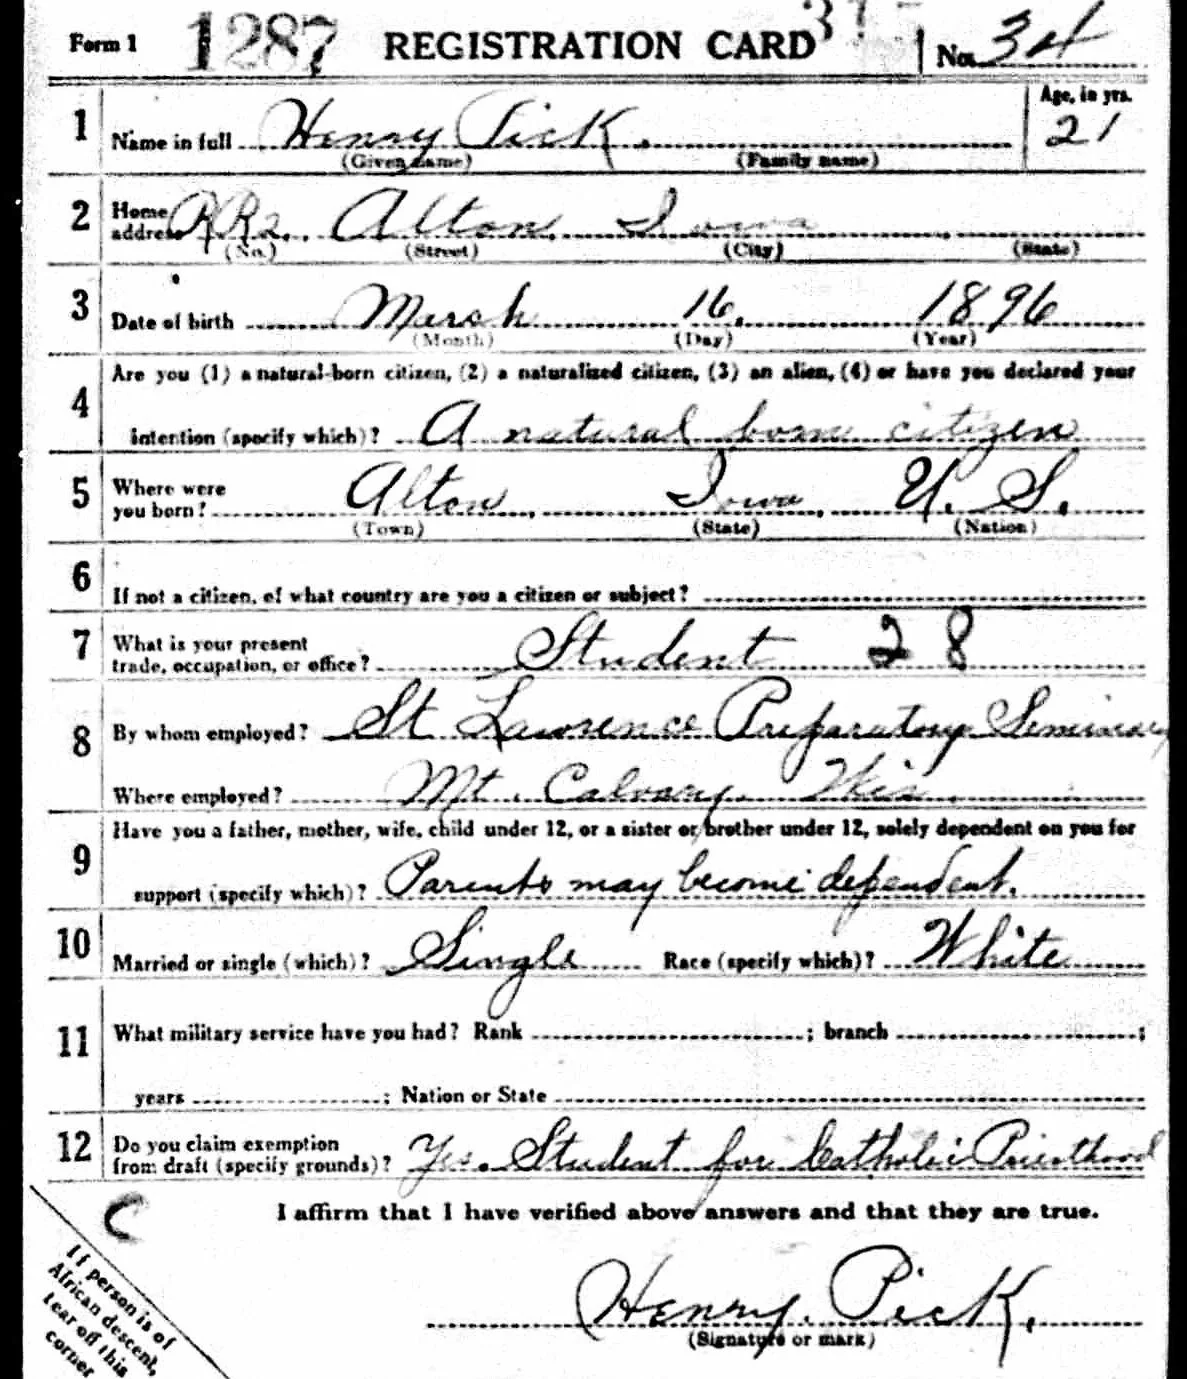 Form 1 1287 REGISTRATION CARD No. 34
Age, in yrs.
1 Name in full Henry Pick. 21
(Given name) (Family name)
2 Home address RR2. Alton, Iowa
(No.) (Street) (City) (State)
3 Date of birth March 16, 1896
(Month) (Day) (Year)
4 Are you (1) a natural-born citizen, (2) a naturalized citizen, (3) an alien, (4) or have you declared your
intention (specify which)? A natural born citizen
5 Where were you born? Alton, Iowa, U. S.
(Town) (State) (Nation)
6 If not a citizen, of what country are you a citizen or subject?
7 What is your present
trade, occupation, or office? Student 28
8 By whom employed? St Lawrence Preparatory Seminary
Where employed? Mt. Calvary. Wis.
9 Have you a father, mother, wife, child under 12, or a sister or brother under 12, solely dependent on you for
support (specify which)? Parents may become dependent.
10 Married or single (which)? Single Race (specify which)? White
11 What military service have you had? Rank ; branch ;
years ; Nation or State
12 Do you claim exemption
from draft (specify grounds)? Yes. Student for Catholic Priesthood
I affirm that I have verified above answers and that they are true.
C
Henry Pick.
(Signature or mark)
If person is of
African descent,
tear off this
corner